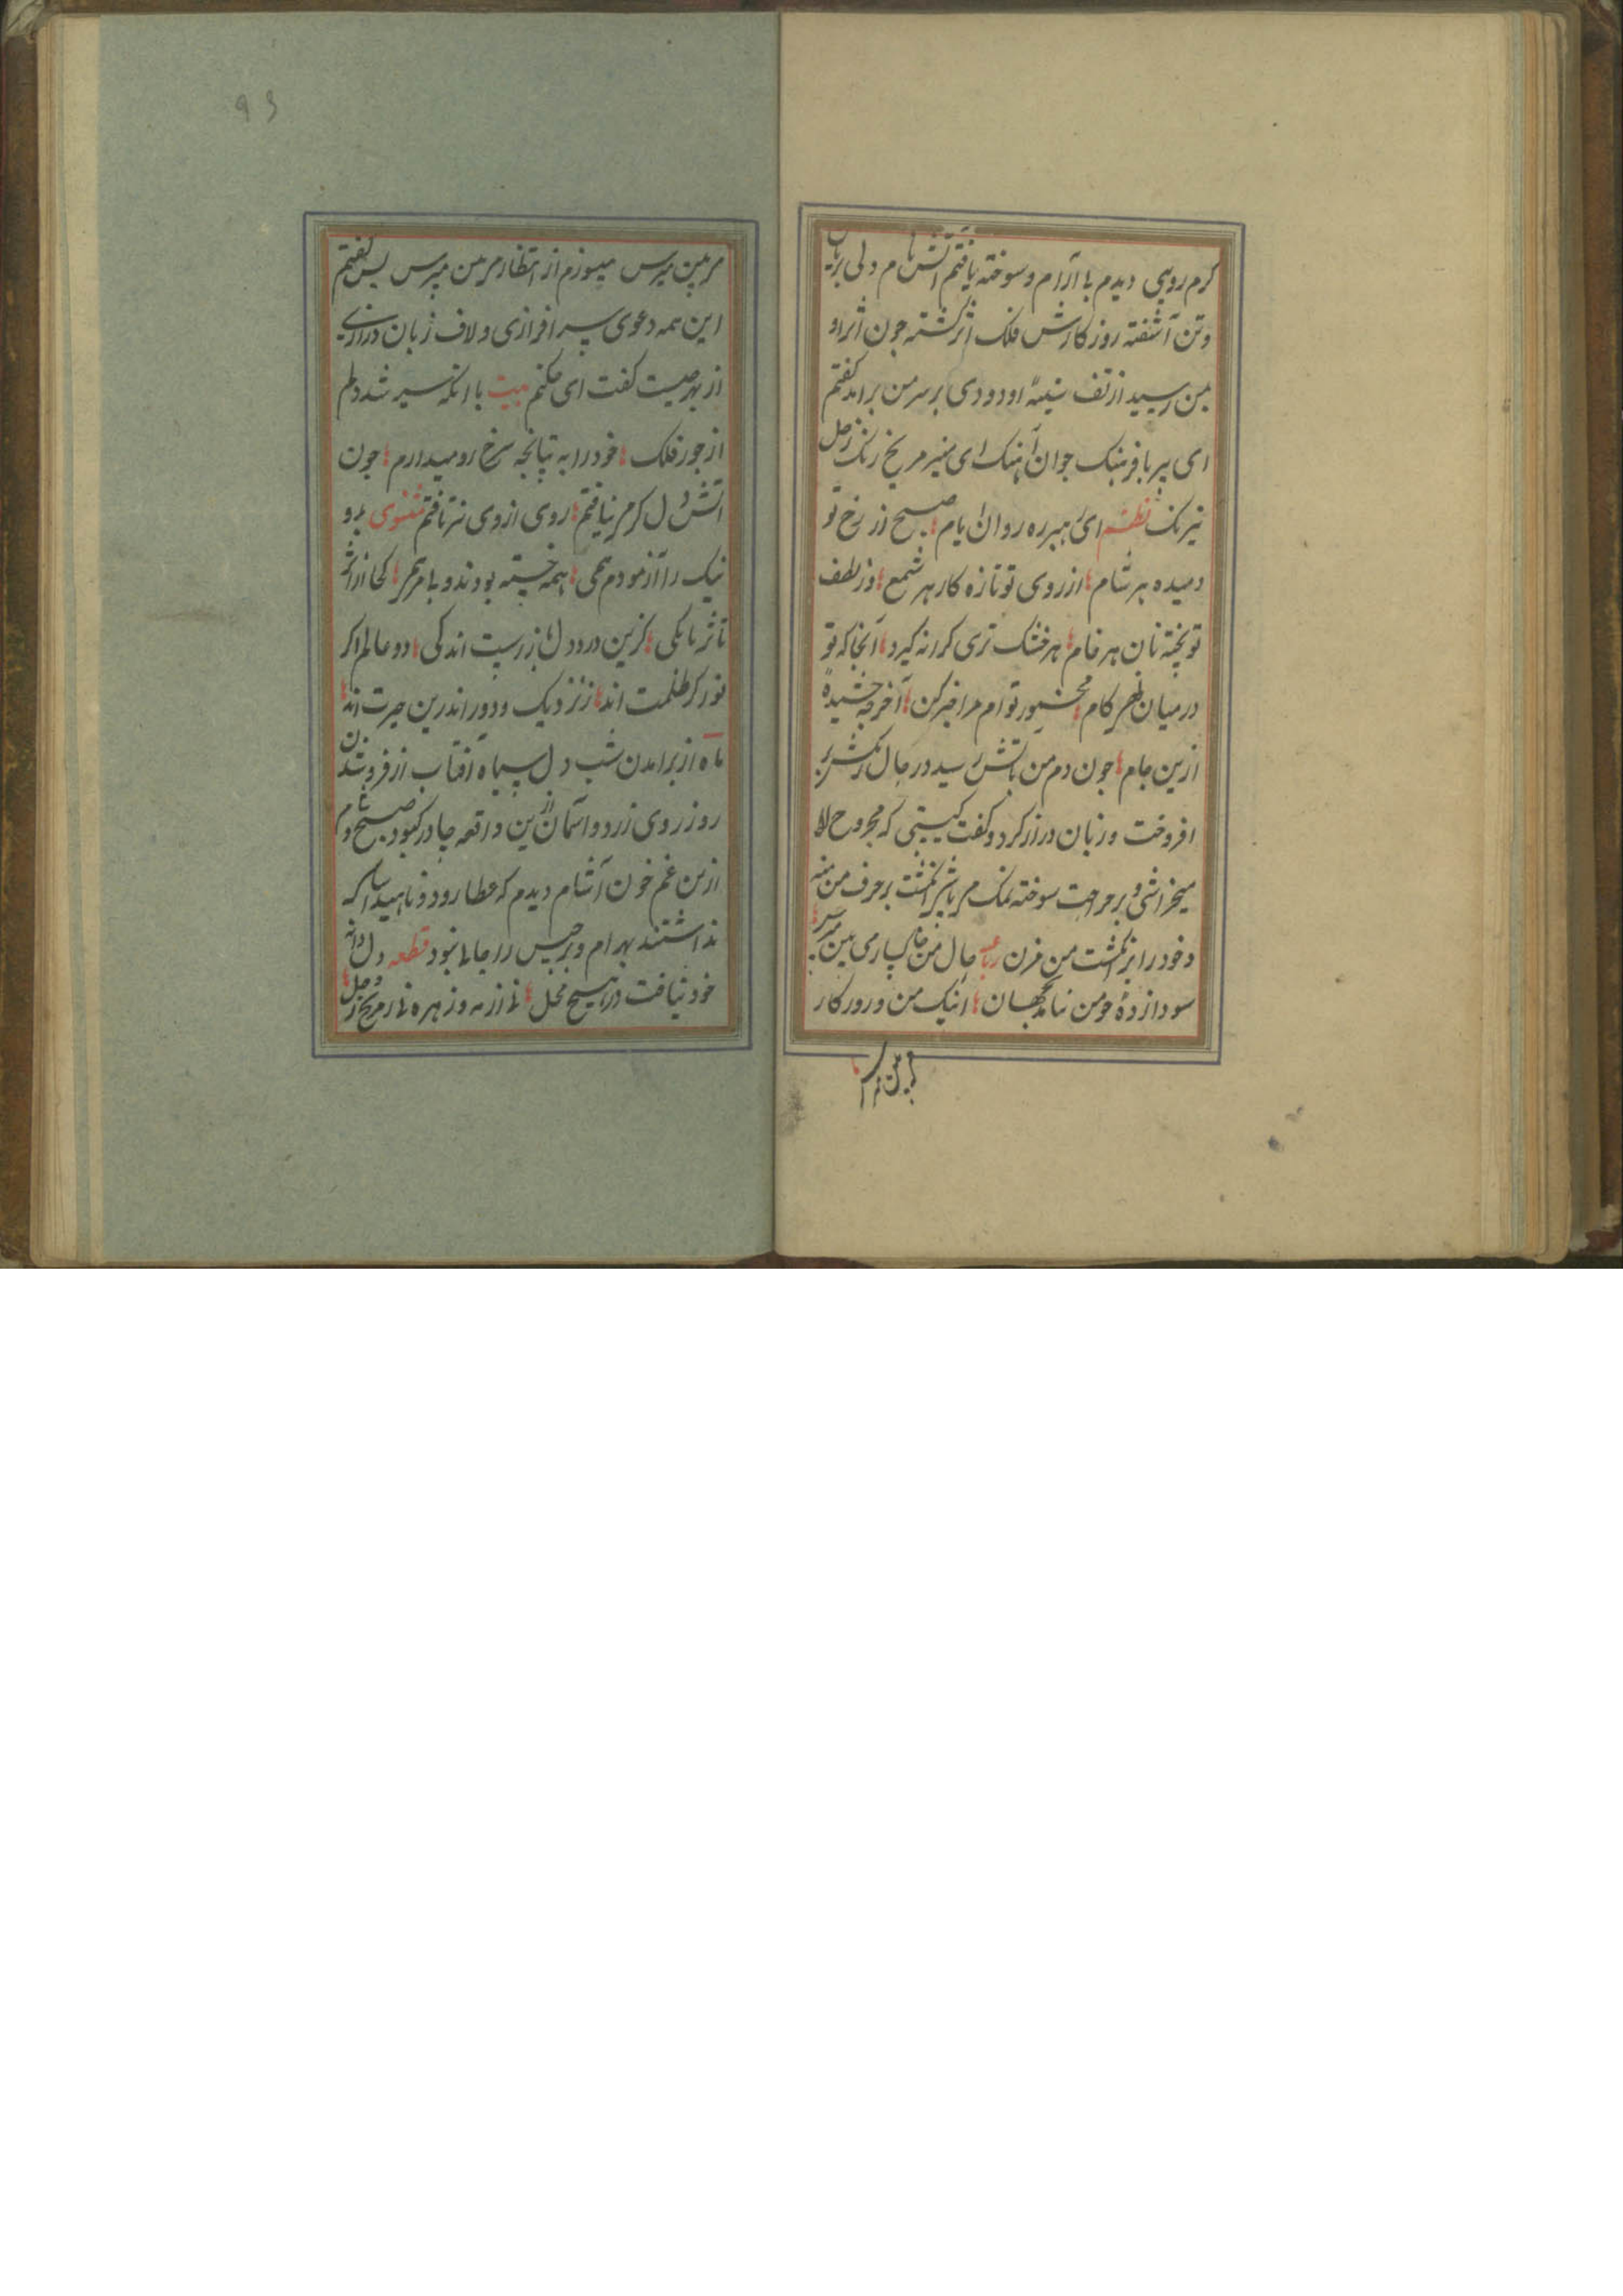 کرم رویی دیدم با آرام و سوخته یافتم آتش نام دلی بریان
وتن آشفته روزکارش فلک از کشته چون اثر او
بمن رسید از تف سینهٔ او دودی بر سر من برامد کفتم
ای پیر با فرهنک جوان آهنک ای منیر مریخ رنک زحل
نیرنک نظم ای رهبر ره روان ایام صبح از رخ تو
دمیده هر شام از روی تو تازه کار هر شمع وز لطف
تو پخته نان هر خام هر خشک و تری کرانه کیرد آنجا که تو
درمیان نهی کام مخمور توام مرا خبر کن آخر چه چشیدهٔ
ازین جام چون دم من باتش رسید در حال
افروخت و زبان دراز کرد و کفت کیستی که مجروح را
میخراشی و بر جراحت سوخته نمک می پاشی انکشت بر حرف من منه
و خود را بر انکشت من مزن رباعی حال من خاکسار می بین مپرس
سودا زدهٔ چو من نیامد بجهان اینک من و روزکار
می بین مپرس
می بین مپرس میسوزم از انتظار می بین مپرس پس کفتم
این همه دعوی سر افرازی و لاف زبان درازی
از بهر چیست کفت ای حکیم بیت با انکه سیر شد دلم
از جور فلک خود را به تپانچه سرخ رو میدارم چون
اتش را دل کرم نیافتم روی از وی برتافتم مثنوی بد و
نیک را آزمودم همی همه خسته بودند و با مرهمی کجا از اثر
تا ثریا یکی کزین درد دل باز رست اندکی دو عالم اکر
نور کر ظلمت اند ز نزدیک و دور اندرین حیرت اند
ماه از برامدن شب دل سیاه آفتاب از فروشدن
روز روی زرد و اسمان ازین واقعه چادر کبود صبح و شام
ازین غم خون آشام دیدم که عطارد و ناهید
نداشتند بهرام و برجیس را جا نبود قطعه دل دوای
خود نیافت در هیچ محل نه از مه و ز زهره نه از مریخ و زحل